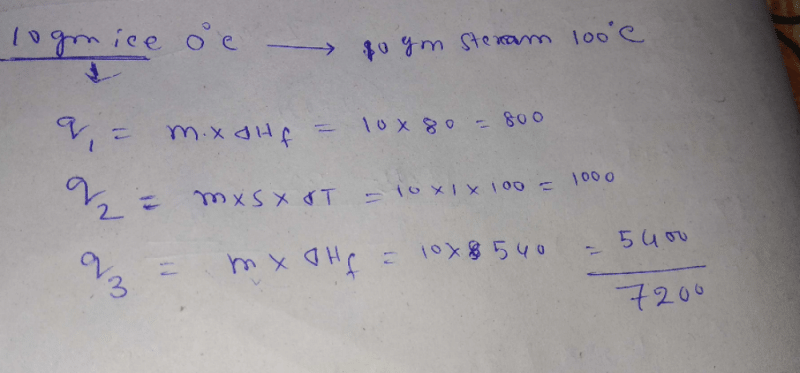 10gm ice 0°c → 10 gm steram 100°C
q₁ = m.x ΔHf = 10 x 80 = 800
q₂ = mxsx ΔT = 10 x1x 100 = 1000
q₃ = m x ΔHf = 10x 540 = 5400
7200